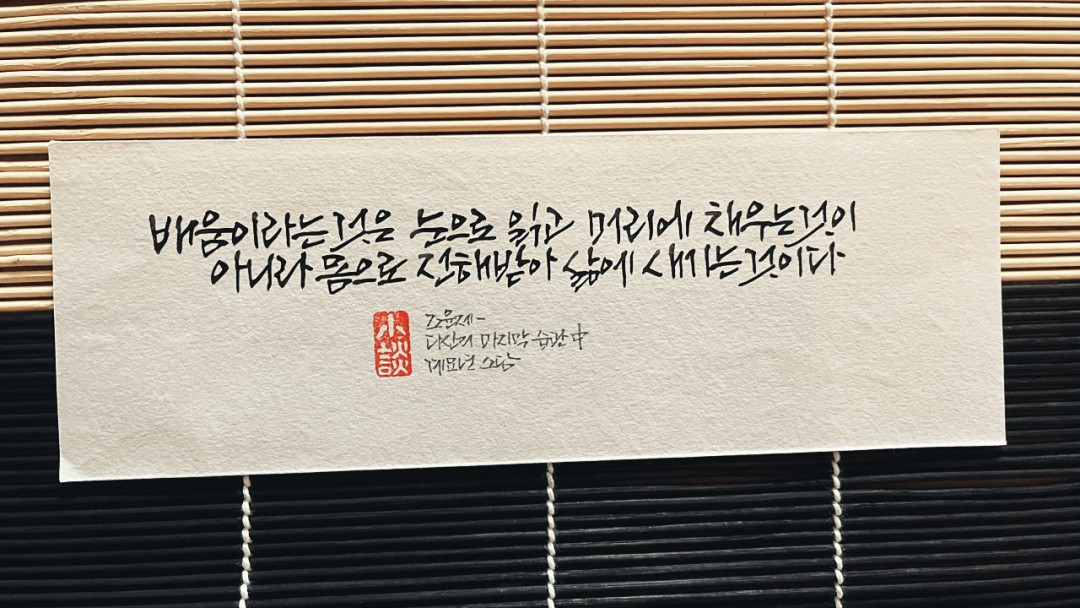 배움이라는것은 눈으로 읽고 머리에 채우는것이
아니라 몸으로 전해받아 삶에 새기는것이다
小談
조윤제-
다산의 마지막 습관 中
계묘년 소담